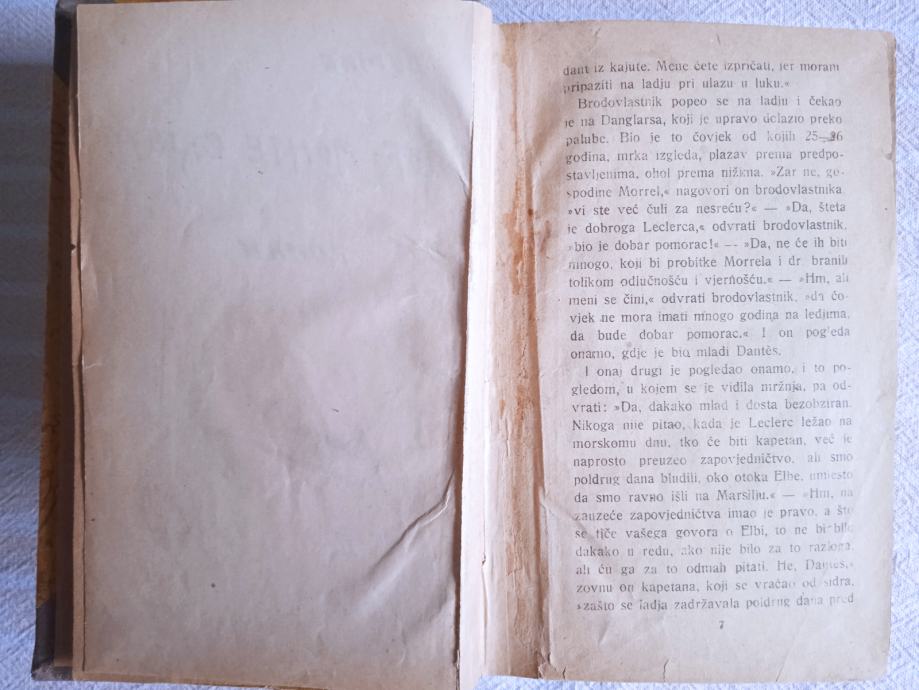 dant iz kajute. Mene ćete izpričati, jer moram
pripaziti na ladju pri ulazu u luku.«
Brodovlastnik popeo se na ladju i čekao
je na Danglarsa, koji je upravo dolazio preko
palube. Bio je to čovjek od kojih 25—26
godina, mrka izgleda, plazav prema predpo-
stavljenima, ohol prema nižima. »Zar ne, go-
spodine Morrel,« nagovori on brodovlastnika
»vi ste već čuli za nesreću?« — »Da, šteta
je dobroga Leclerca,« odvrati brodovlastnik,
»bio je dobar pomorac!« — »Da, ne će ih biti
mnogo, koji bi probitke Morrela i dr. branili
tolikom odlučnošću i vjernošću.« — »Hm, ali
meni se čini,« odvrati brodovlastnik, »da čo-
vjek ne mora imati mnogo godina na ledjima,
da bude dobar pomorac.« I on pogleda
onamo, gdje je bio mladi Dantès.
I onaj drugi je pogledao onamo, i to po-
gledom, u kojem se je vidila mržnja, pa od-
vrati: »Da, dakako mlad i dosta bezobziran.
Nikoga nije pitao, kada je Leclerc ležao na
morskomu dnu, tko će biti kapetan, već je
naprosto preuzeo zapovjedničtvo, ali smo
poldrug dana bludili, oko otoka Elbe, umjesto
da smo ravno išli na Marsilju.« — »Hm, na
zauzeće zapovjedničtva imao je pravo, a što
se tiče vašega govora o Elbi, to ne bi bilo
dakako u redu, ako nije bilo za to razloga,
ali ću ga za to odmah pitati. He, Dantès,«
zovnu on kapetana, koji se vraćao od sidra,
»zašto se ladja zadržavala poldrug dana pred
7